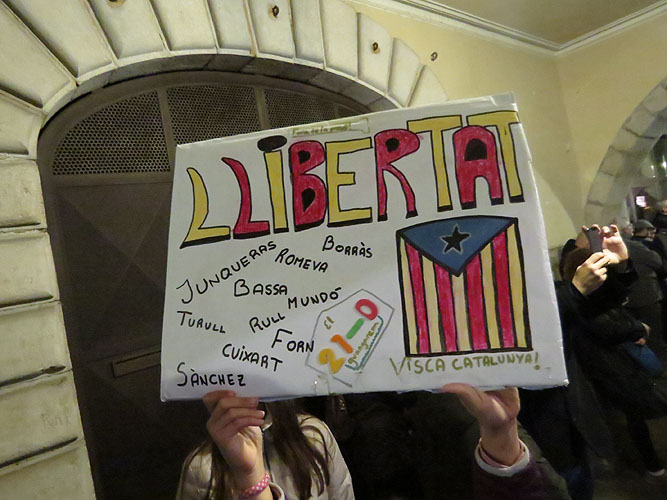 LLIBERTAT
JUNQUERAS
ROMEVA
BORRÀS
BASSA
MUNDÓ
TURULL
RULL
FORN
CUIXART
SÀNCHEZ
El
21-D
guanyarem
VISCA CATALUNYA!